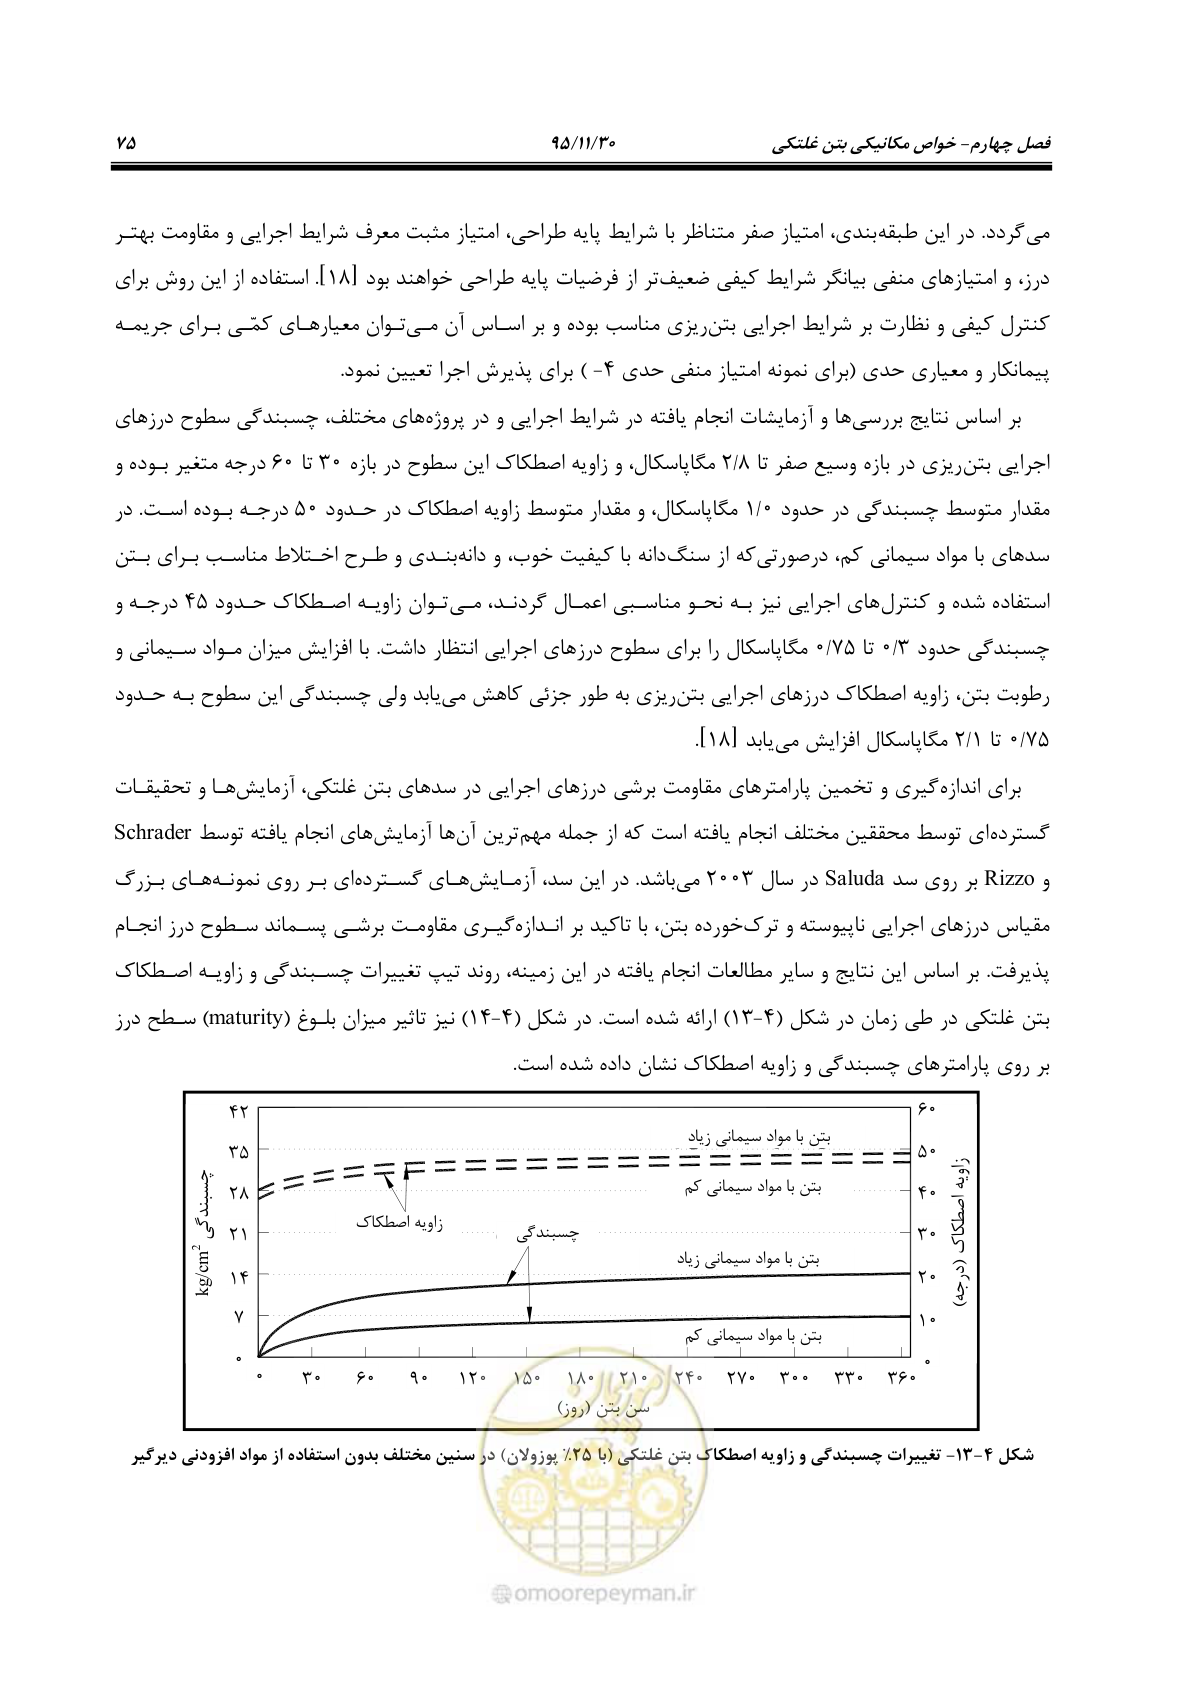 فصل چهارم- خواص مکانیکی بتن غلتکی ۹۵/۱۱/۳۰ ۷۵
می‌گردد. در این طبقه‌بندی، امتیاز صفر متناظر با شرایط پایه طراحی، امتیاز مثبت معرف شرایط اجرایی و مقاومت بهتر
درز، و امتیازهای منفی بیانگر شرایط کیفی ضعیف‌تر از فرضیات پایه طراحی خواهند بود [۱۸]. استفاده از این روش برای
کنترل کیفی و نظارت بر شرایط اجرایی بتن‌ریزی مناسب بوده و بر اساس آن می‌توان معیارهای کمّی برای جریمه
پیمانکار و معیاری حدی (برای نمونه امتیاز منفی حدی ۴- ) برای پذیرش اجرا تعیین نمود.
بر اساس نتایج بررسی‌ها و آزمایشات انجام یافته در شرایط اجرایی و در پروژه‌های مختلف، چسبندگی سطوح درزهای
اجرایی بتن‌ریزی در بازه وسیع صفر تا ۲/۸ مگاپاسکال، و زاویه اصطکاک این سطوح در بازه ۳۰ تا ۶۰ درجه متغیر بوده و
مقدار متوسط چسبندگی در حدود ۱/۰ مگاپاسکال، و مقدار متوسط زاویه اصطکاک در حدود ۵۰ درجه بوده است. در
سدهای با مواد سیمانی کم، درصورتی‌که از سنگ‌دانه با کیفیت خوب، و دانه‌بندی و طرح اختلاط مناسب برای بتن
استفاده شده و کنترل‌های اجرایی نیز به نحو مناسبی اعمال گردند، می‌توان زاویه اصطکاک حدود ۴۵ درجه و
چسبندگی حدود ۰/۳ تا ۰/۷۵ مگاپاسکال را برای سطوح درزهای اجرایی انتظار داشت. با افزایش میزان مواد سیمانی و
رطوبت بتن، زاویه اصطکاک درزهای اجرایی بتن‌ریزی به طور جزئی کاهش می‌یابد ولی چسبندگی این سطوح به حدود
۰/۷۵ تا ۲/۱ مگاپاسکال افزایش می‌یابد [۱۸].
برای اندازه‌گیری و تخمین پارامترهای مقاومت برشی درزهای اجرایی در سدهای بتن غلتکی، آزمایش‌ها و تحقیقات
گسترده‌ای توسط محققین مختلف انجام یافته است که از جمله مهم‌ترین آن‌ها آزمایش‌های انجام یافته توسط Schrader
و Rizzo بر روی سد Saluda در سال ۲۰۰۳ می‌باشد. در این سد، آزمایش‌های گسترده‌ای بر روی نمونه‌های بزرگ
مقیاس درزهای اجرایی ناپیوسته و ترک‌خورده بتن، با تاکید بر اندازه‌گیری مقاومت برشی پسماند سطوح درز انجام
پذیرفت. بر اساس این نتایج و سایر مطالعات انجام یافته در این زمینه، روند تیپ تغییرات چسبندگی و زاویه اصطکاک
بتن غلتکی در طی زمان در شکل (۴-۱۳) ارائه شده است. در شکل (۴-۱۴) نیز تاثیر میزان بلوغ (maturity) سطح درز
بر روی پارامترهای چسبندگی و زاویه اصطکاک نشان داده شده است.
۶۰
۵۰
۴۰
۳۰
۲۰
۱۰
۰
زاویه اصطکاک (درجه)
بتن با مواد سیمانی زیاد
بتن با مواد سیمانی کم
زاویه اصطکاک
چسبندگی
بتن با مواد سیمانی زیاد
بتن با مواد سیمانی کم
۴۲
۳۵
۲۸
۲۱
۱۴
۷
۰
چسبندگی kg/cm²
۰ ۳۰ ۶۰ ۹۰ ۱۲۰ ۱۵۰ ۱۸۰ ۲۱۰ ۲۴۰ ۲۷۰ ۳۰۰ ۳۳۰ ۳۶۰
سن بتن (روز)
شکل ۴-۱۳- تغییرات چسبندگی و زاویه اصطکاک بتن غلتکی (با ۲۵٪ پوزولان) در سنین مختلف بدون استفاده از مواد افزودنی دیرگیر
امور پیمان
@omoorepeyman.ir